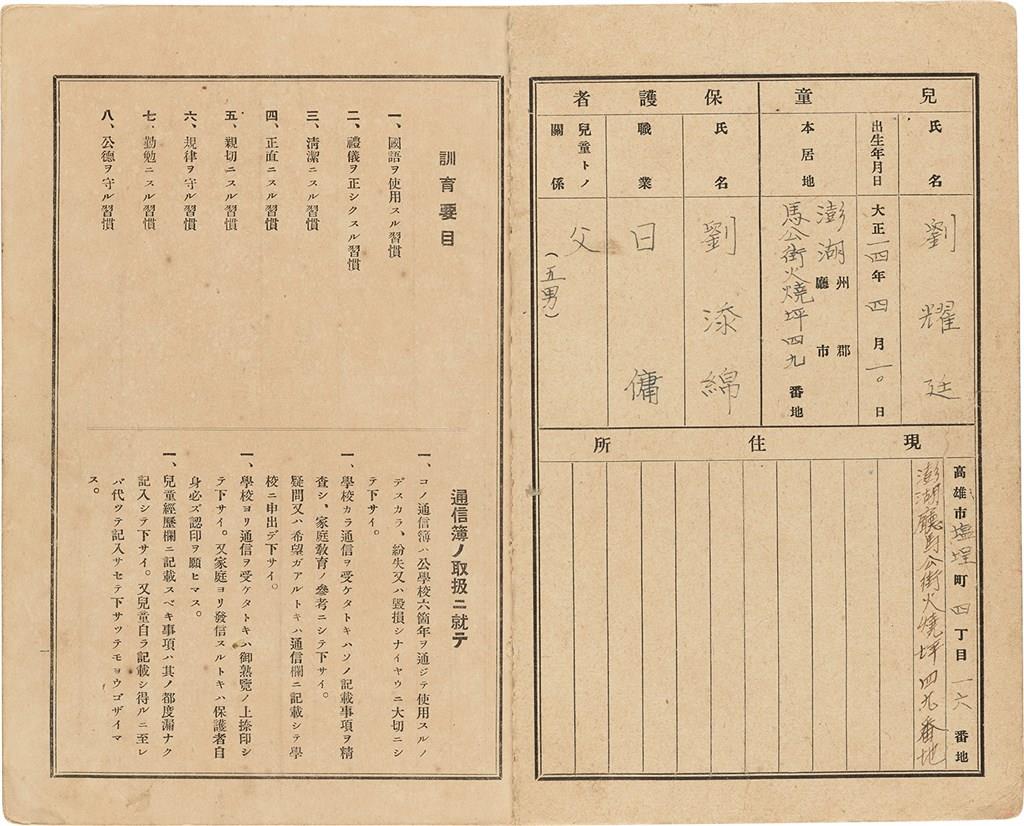 兒童
氏名
劉耀廷
出生年月日
大正一四年四月一〇日
本居地
澎湖 州廳 郡市
馬公街火燒坪四九番地
保護者
氏名
劉添綿
職業
日傭
兒童トノ關係
父
(五男)
現住所
高雄市塩埕町四丁目一六番地
澎湖廳馬公街火燒坪四九番地
訓育要目
一、國語ヲ使用スル習慣
二、禮儀ヲ正シクスル習慣
三、清潔ニスル習慣
四、正直ニスル習慣
五、親切ニスル習慣
六、規律ヲ守ル習慣
七、勤勉ニスル習慣
八、公德ヲ守ル習慣
通信簿ノ取扱ニ就テ
一、コノ通信簿ハ公學校六箇年ヲ通ジテ使用スルノ
デスカラ、紛失又ハ毀損シナイヤウニ大切ニシ
テ下サイ。
一、學校カラ通信ヲ受ケタトキハソノ記載事項ヲ精
査シ、家庭敎育ノ參考ニシテ下サイ。
疑問又ハ希望ガアルトキハ通信欄ニ記載シテ學
校ニ申出デ下サイ。
一、學校ヨリ通信ヲ受ケタトキハ御熟覽ノ上捺印シ
テ下サイ。又家庭ヨリ發信スルトキハ保護者自
身必ズ認印ヲ願ヒマス。
一、兒童經歷欄ニ記載スベキ事項ハ其ノ都度漏ナク
記入シテ下サイ。又兒童自ラ記載シ得ルニ至レ
バ代ツテ記入サセテ下サツテモヨウゴザイマ
ス。